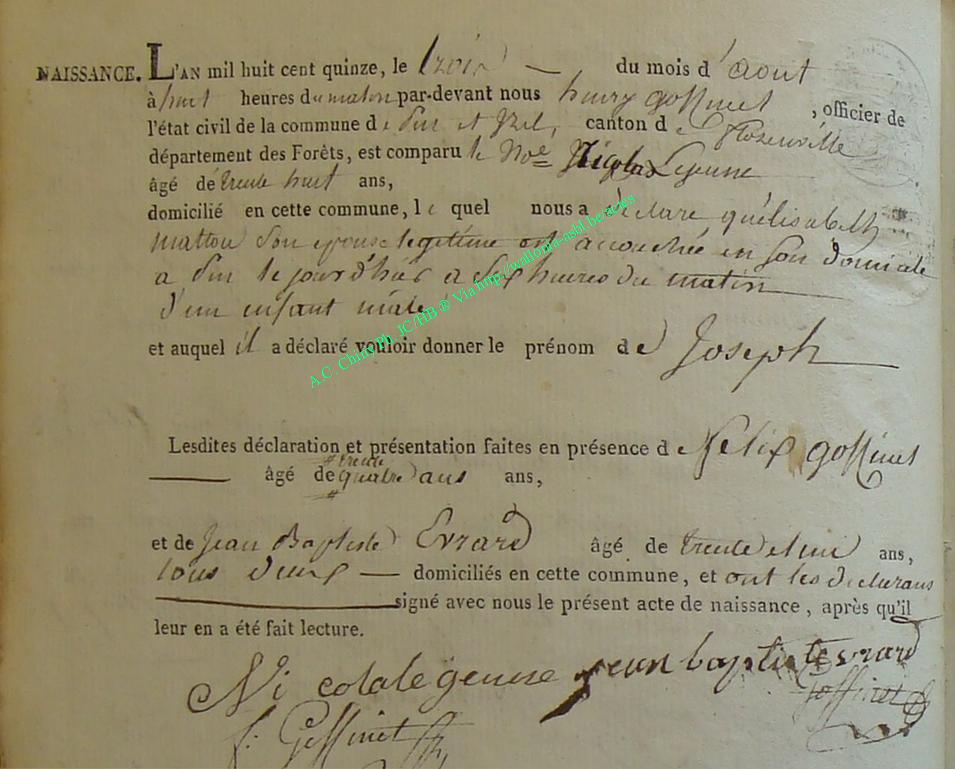 NAISSANCE. L'AN mil huit cent quinze, le trois — du mois d'aout
à huit heures du matin par-devant nous henry goffinet, officier de
l'état civil de la commune de Pin et Izel, canton de florenville
département des Forêts, est comparu le Nicolas Lejeune
âgé de trente huit ans,
domicilié en cette commune, le quel nous a déclare qu'élisabeth
matton son epouse legitime est accouchée en son domicile
a Pin le jourd'hier a six heures du matin
d'un enfant male
et auquel il a déclaré vouloir donner le prénom de Joseph
A.C. Chiny Ph. JC/HB ® Via http://wallonia-asbl.be/actes
Lesdites déclaration et présentation faites en présence de Felix goffinet
— âgé de trente quatre ans ans,
et de Jean Baptiste Evrard âgé de trente et un ans,
tous deux — domiciliés en cette commune, et ont les declarans
signé avec nous le présent acte de naissance, après qu'il
leur en a été fait lecture.
Ni colale geune jean baptiste vrard
goffinet
f. Goffinet